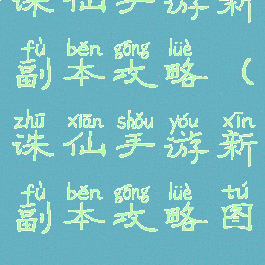 诛仙手游新
fù běn gōng lüè
副本攻略（
zhū xiān shǒu yóu xīn
诛仙手游新
fù běn gōng lüè tú
副本攻略图